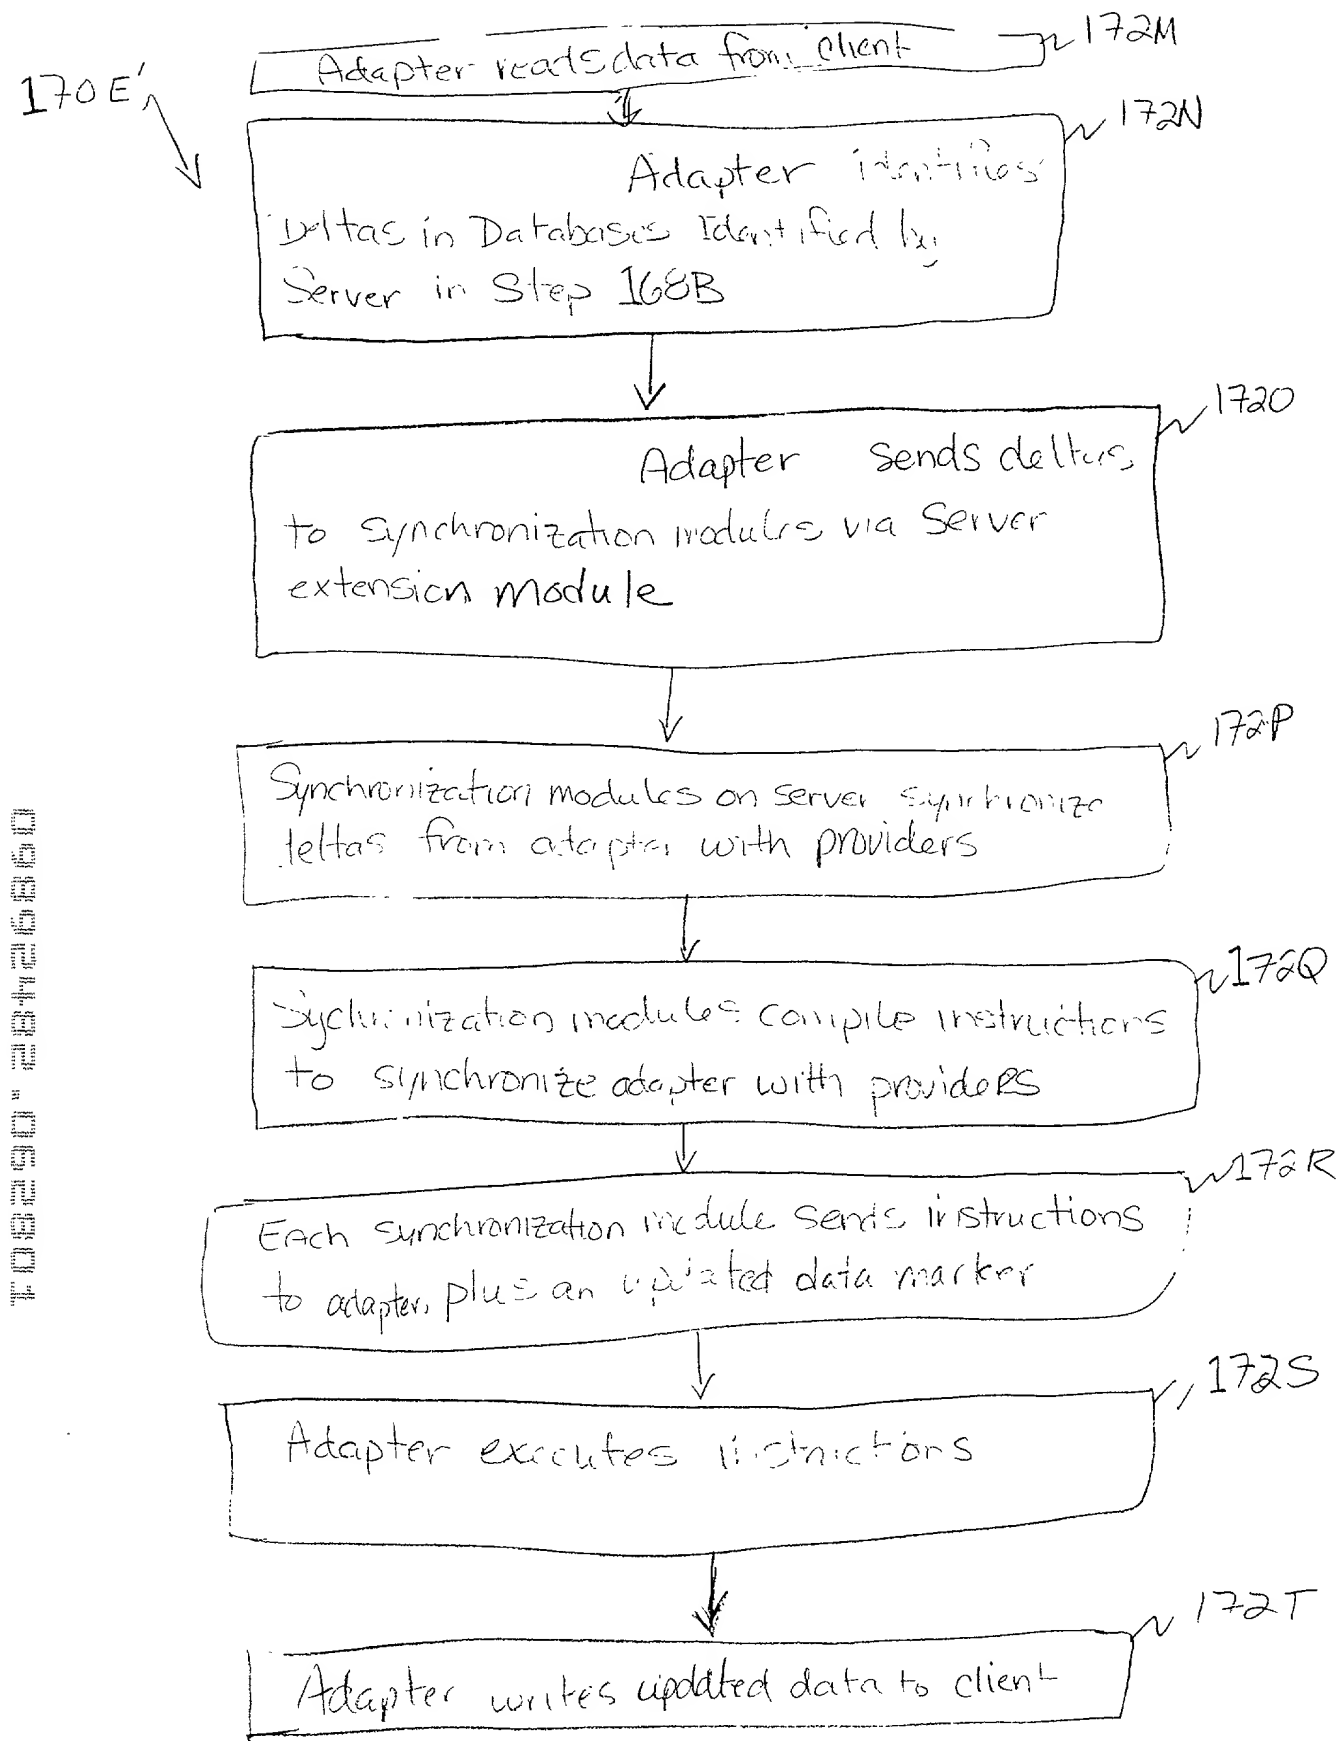 172M
Adapter reads data from client
170E'
172N
Adapter identifies
Deltas in Databases Identified by
Server in Step 168B
1720
Adapter sends deltas
to synchronization modules via Server
extension module
172P
Synchronization modules on server synchronize
deltas from adapter with providers
172Q
Sychronization modules compile instructions
to synchronize adapter with providers
172R
Each synchronization module sends instructions
to adapter, plus an updated data marker
172S
Adapter executes instructions
172T
Adapter writes updated data to client
09892482.062801